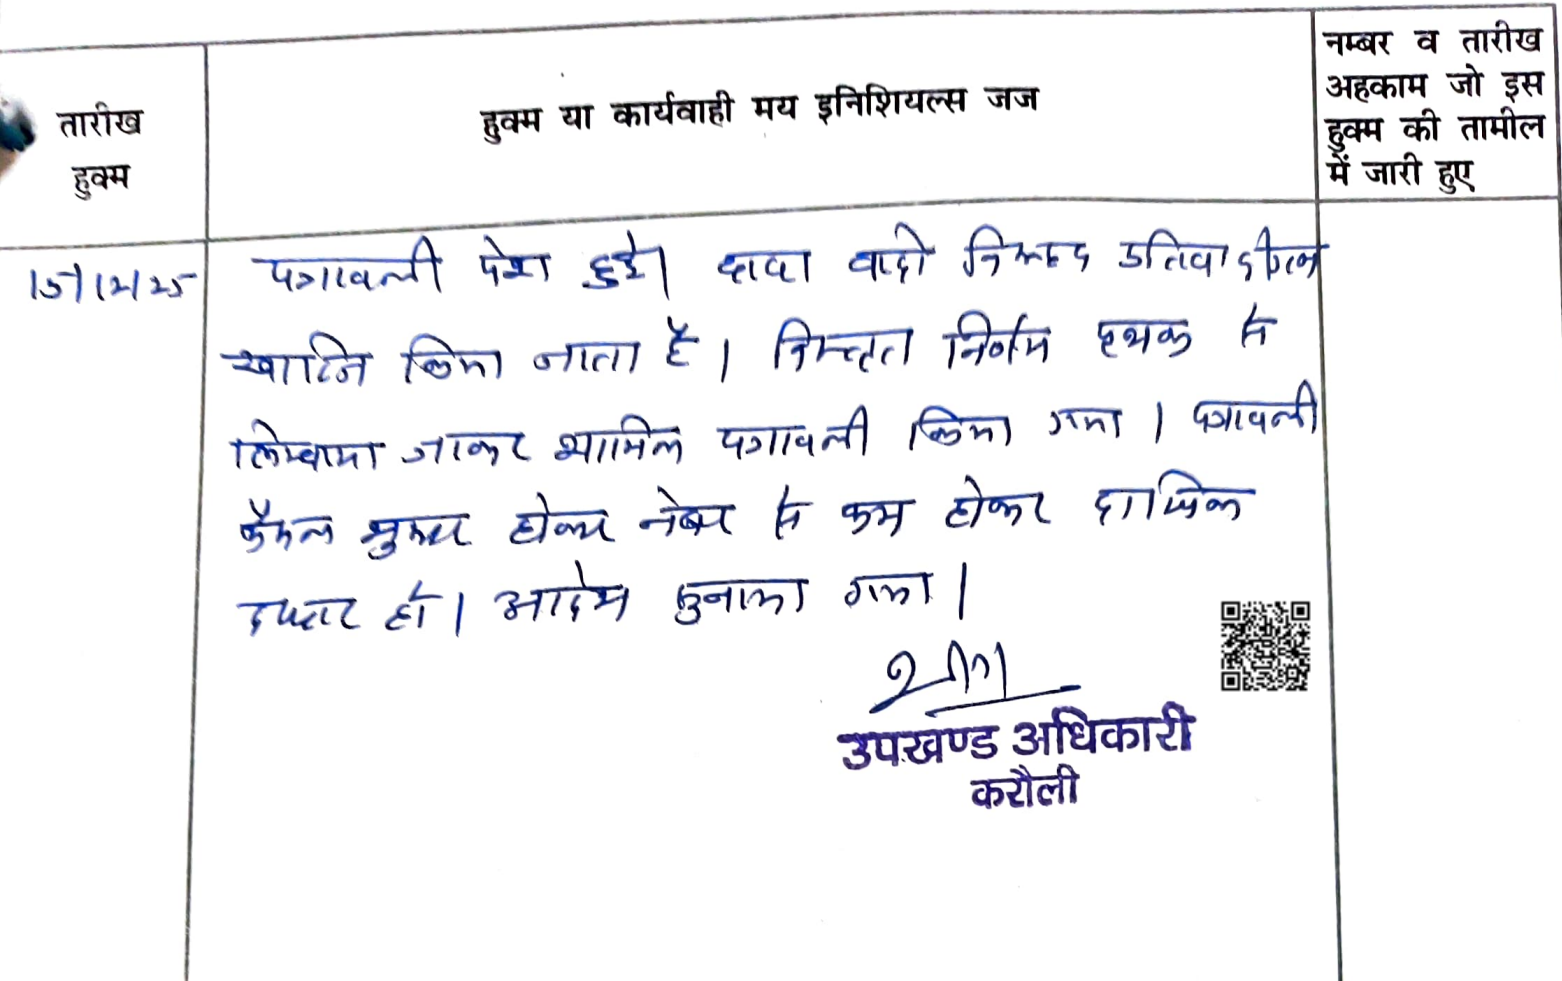 तारीख
हुक्म
हुक्म या कार्यवाही मय इनिशियल्स जज
नम्बर व तारीख
अहकाम जो इस
हुक्म की तामील
में जारी हुए
पत्रावली पेश हुई। दावा वादी विरूद्ध प्रतिवादीगण
खारिज किया जाता है। विस्तृत निर्णय पृथक से
लिखाया जाकर शामिल पत्रावली किया गया। पत्रावली
फैसल शुमार होकर नंबर से कम होकर दाखिल
दफ्तर हो। आदेश सुनाया गया।
उपखण्ड अधिकारी
करौली